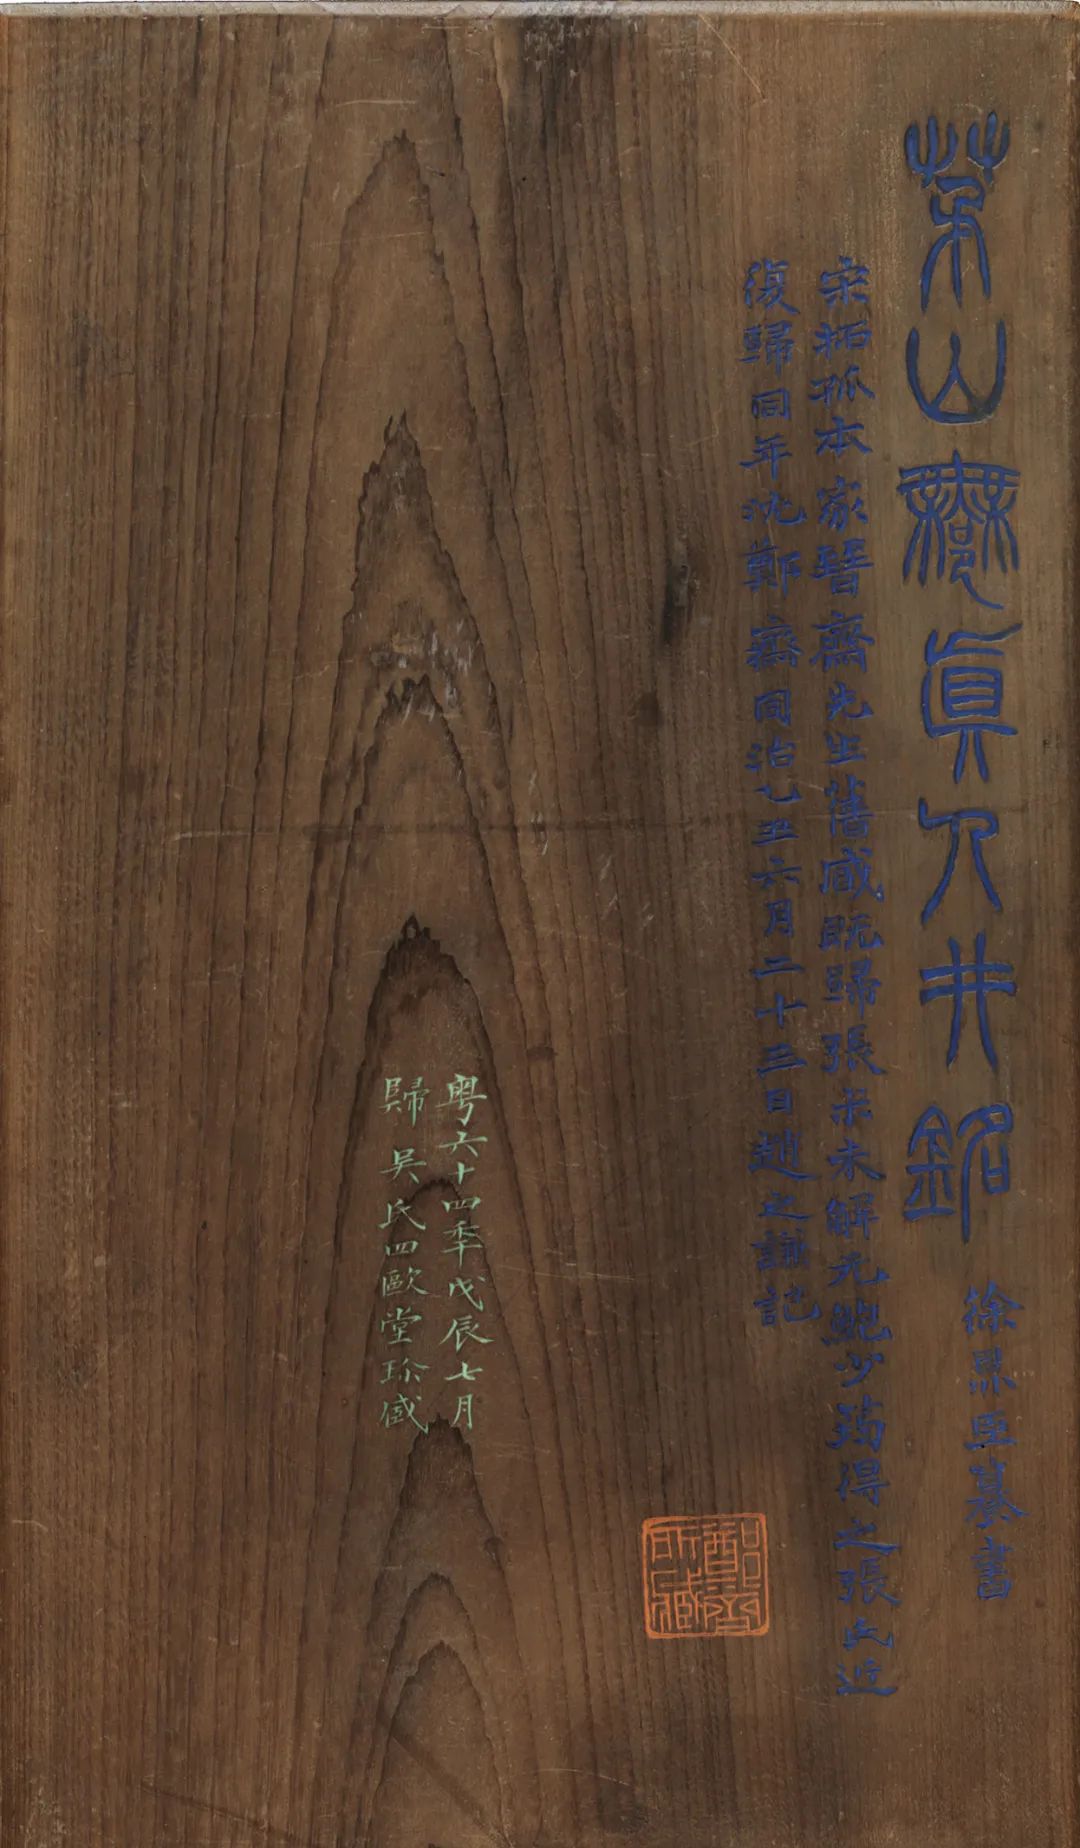 茅山無真人井銘
徐鼎臣篆書
宋拓孤本家晉齋先生舊臧既歸張未未解元鮑少筠得之張氏近
復歸同年沈鄭齋同治乙丑六月二十三日趙之謙記
粵六十四季戊辰七月
歸吳氏四歐堂珍臧
鄭齋所臧